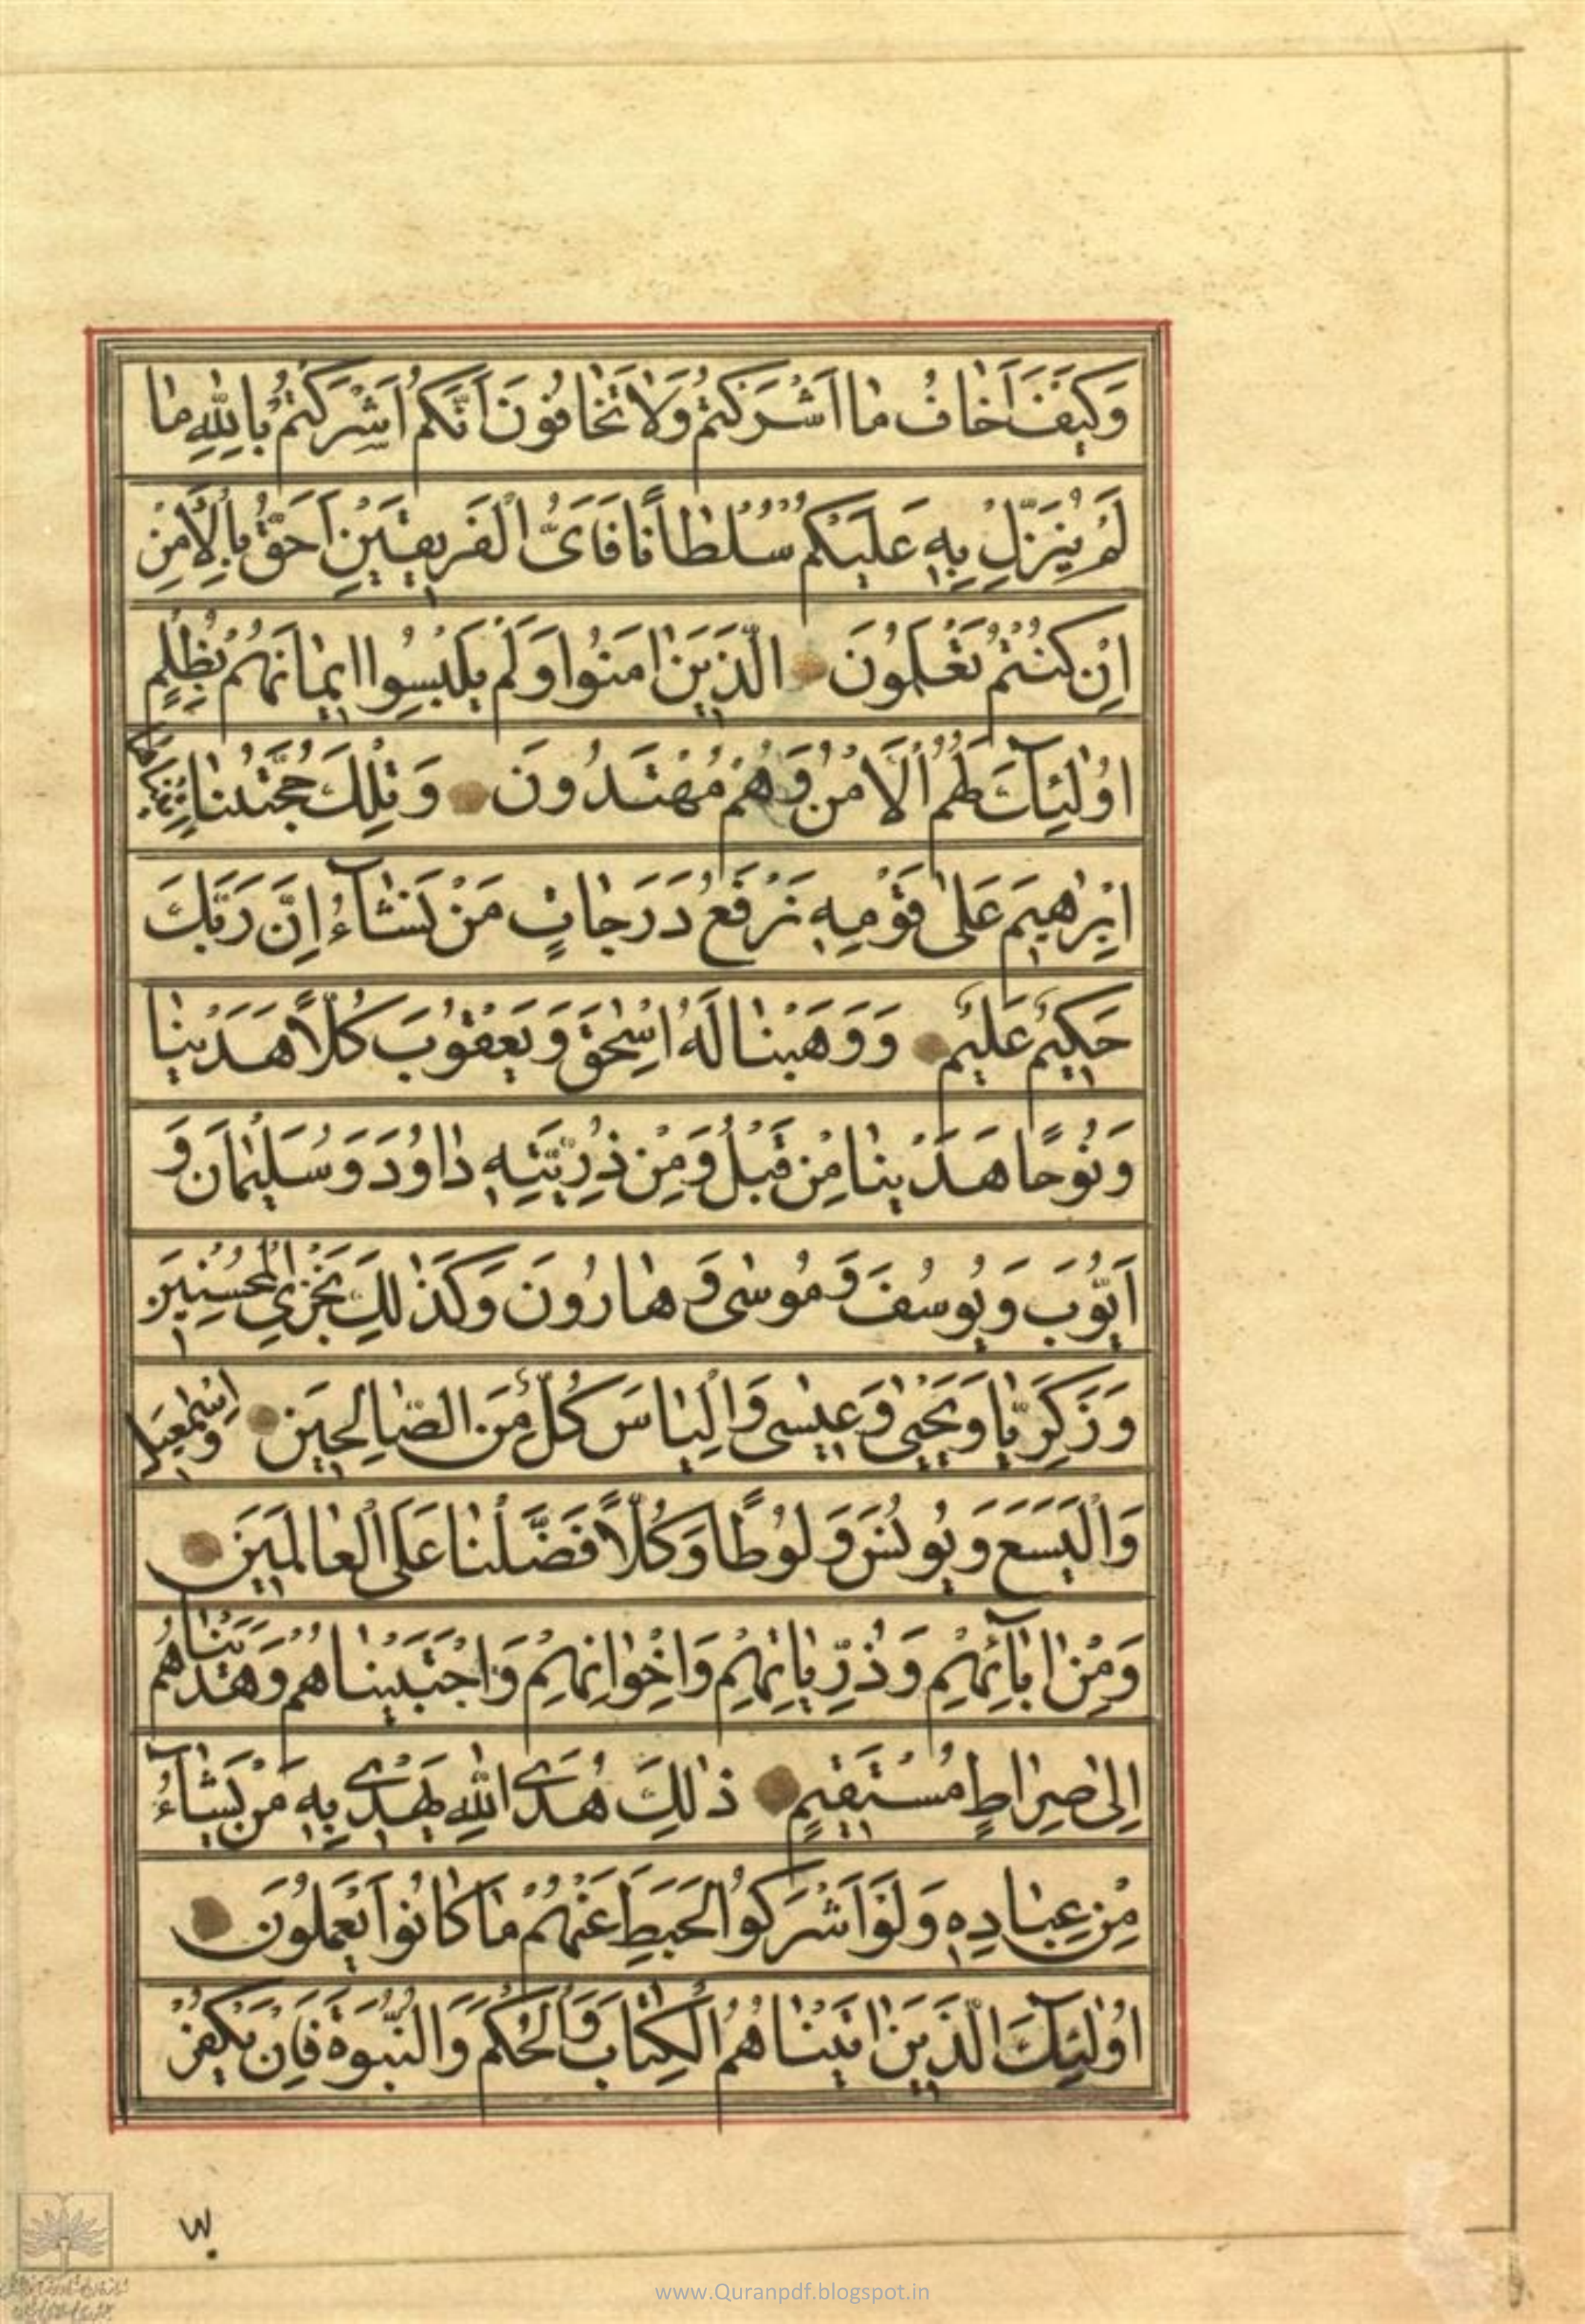 وَكَيْفَ اَخٰافُ مٰا اَشْرَكْتُمْ وَلٰا تَخٰافُونَ اَنَّكُمْ اَشْرَكْتُمْ بِاللّٰهِ مٰا
لَمْ يُنَزِّلْ بِهِ عَلَيْكُمْ سُلْطٰانًا فَاَىُّ الْفَرِيقَيْنِ اَحَقُّ بِالْاَمْنِ
اِنْ كُنْتُمْ تَعْلَمُونَ الَّذِينَ اٰمَنُوا وَلَمْ يَلْبِسُوا اِيمٰانَهُمْ بِظُلْمٍ
اُولٰئِكَ لَهُمُ الْاَمْنُ وَهُمْ مُهْتَدُونَ وَتِلْكَ حُجَّتُنٰا اٰتَيْنٰاهٰا
اِبْرٰهِيمَ عَلىٰ قَوْمِهِ نَرْفَعُ دَرَجٰاتٍ مَنْ نَشٰآءُ اِنَّ رَبَّكَ
حَكِيمٌ عَلِيمٌ وَوَهَبْنٰا لَهُ اِسْحٰقَ وَيَعْقُوبَ كُلًّا هَدَيْنٰا
وَنُوحًا هَدَيْنٰا مِنْ قَبْلُ وَمِنْ ذُرِّيَّتِهِ دٰاوُدَ وَسُلَيْمٰانَ وَ
اَيُّوبَ وَيُوسُفَ وَمُوسٰى وَهٰارُونَ وَكَذٰلِكَ نَجْزِي الْمُحْسِنِينَ
وَزَكَرِيّٰا وَيَحْيٰى وَعِيسٰى وَاِلْيٰاسَ كُلٌّ مِنَ الصّٰالِحِينَ وَاِسْمٰعِيلَ
وَالْيَسَعَ وَيُونُسَ وَلُوطًا وَكُلًّا فَضَّلْنٰا عَلَى الْعٰالَمِينَ
وَمِنْ اٰبٰآئِهِمْ وَذُرِّيّٰاتِهِمْ وَاِخْوٰانِهِمْ وَاجْتَبَيْنٰاهُمْ وَهَدَيْنٰاهُمْ
اِلىٰ صِرٰاطٍ مُسْتَقِيمٍ ذٰلِكَ هُدَى اللّٰهِ يَهْدِى بِهِ مَنْ يَشٰآءُ
مِنْ عِبٰادِهِ وَلَوْ اَشْرَكُوا لَحَبِطَ عَنْهُمْ مٰا كٰانُوا يَعْمَلُونَ
اُولٰئِكَ الَّذِينَ اٰتَيْنٰاهُمُ الْكِتٰابَ وَالْحُكْمَ وَالنُّبُوَّةَ فَاِنْ يَكْفُرْ
www.Quranpdf.blogspot.in